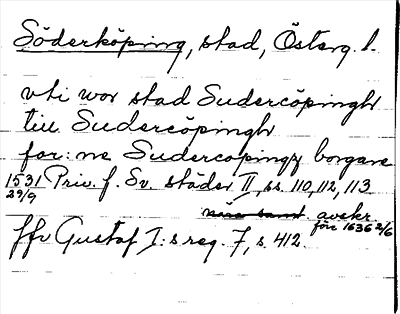 Söderköping, stad, Österg. l.
vti wor stad Sudercöpingh
till Sudercöpingh
for:ne Sudercopingz borgare
1531 29/9 Priv. f. Sv. städer II, ss. 110, 112, 113
avskr. före 1636 2/6
Jfr Gustaf I:s reg. 7, s. 412.